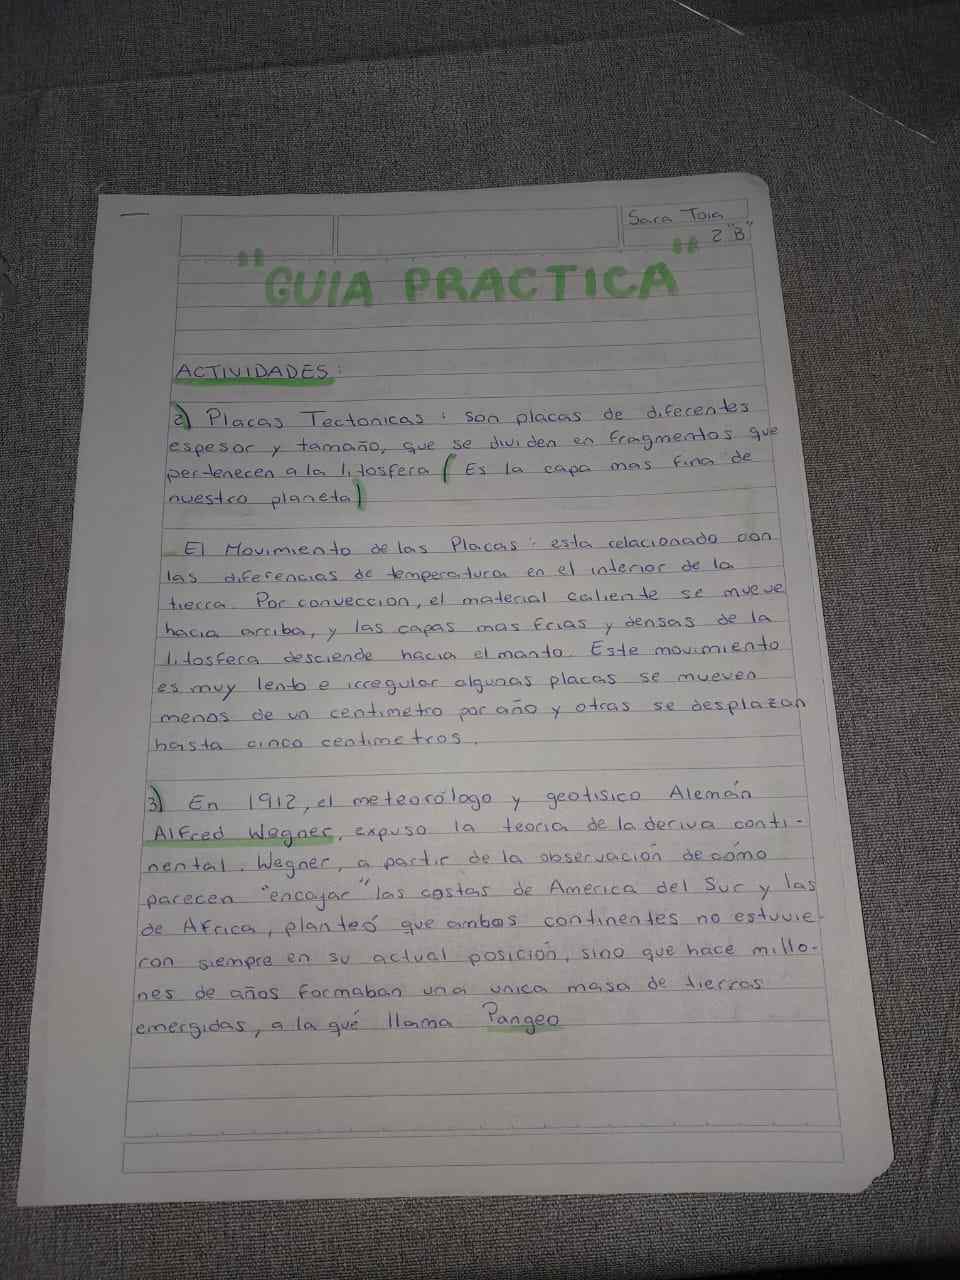 Sara Toia
2 "B"
"GUIA PRACTICA"
ACTIVIDADES:
2) Placas Tectonicas: son placas de diferentes
espesor y tamaño, que se dividen en fragmentos que
pertenecen a la litosfera (Es la capa mas fina de
nuestro planeta)
El Movimiento de las Placas: esta relacionado con
las diferencias de temperatura en el interior de la
tierra. Por conveccion, el material caliente se mueve
hacia arriba, y las capas mas frias y densas de la
litosfera desciende hacia el manto. Este movimiento
es muy lento e irregular algunas placas se mueven
menos de un centimetro por año y otras se desplazan
hasta cinco centimetros.
3) En 1912, el meteorólogo y geofisico Alemán
Alfred Wegner, expuso la teoria de la deriva conti-
nental. Wegner, a partir de la observación de cómo
parecen "encajar" las costas de America del Sur y las
de Africa, planteó que ambos continentes no estuvie-
ron siempre en su actual posición, sino que hace millo-
nes de años formaban una unica masa de tierras
emergidas, a la qué llama Pangeo